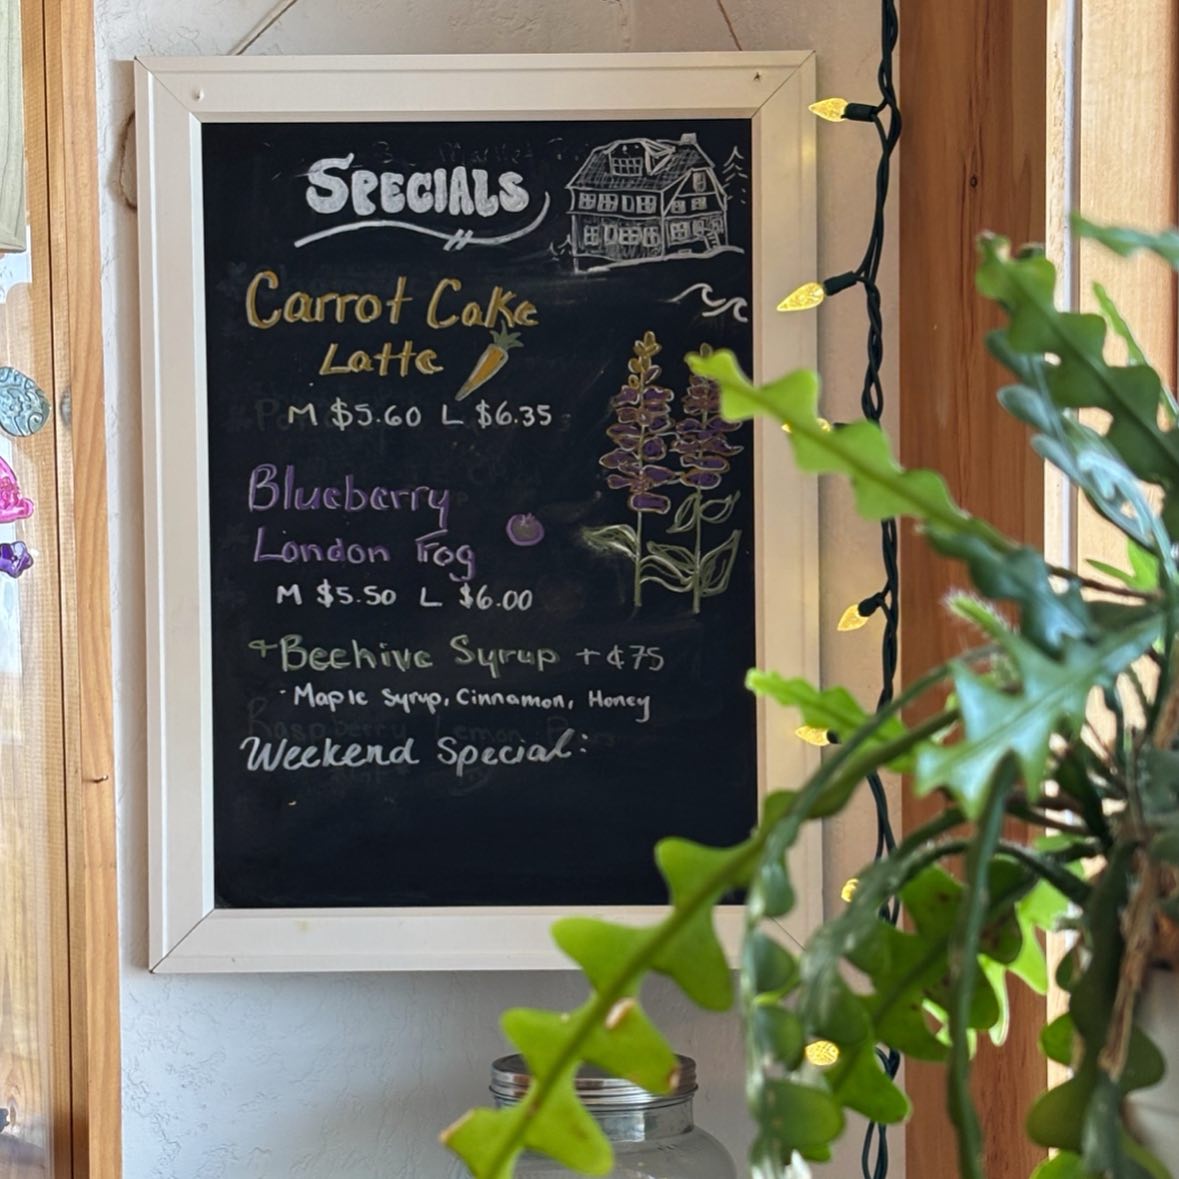 SPECIALS
Carrot Cake
Latte
M $5.60 L $6.35
Blueberry
London Fog
M $5.50 L $6.00
+Beehive Syrup +¢75
·Maple Syrup, Cinnamon, Honey
Weekend Special: